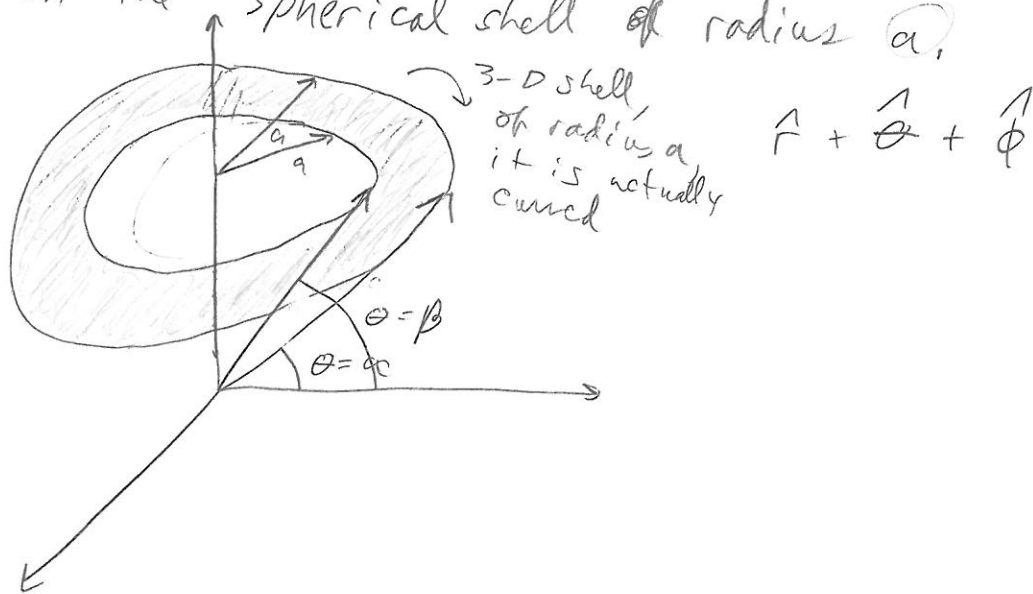 spherical shell of radius a.
3-D shell,
of radius a,
it is actually
curved
r̂ + θ̂ + ϕ̂
a
a
θ = β
θ = α